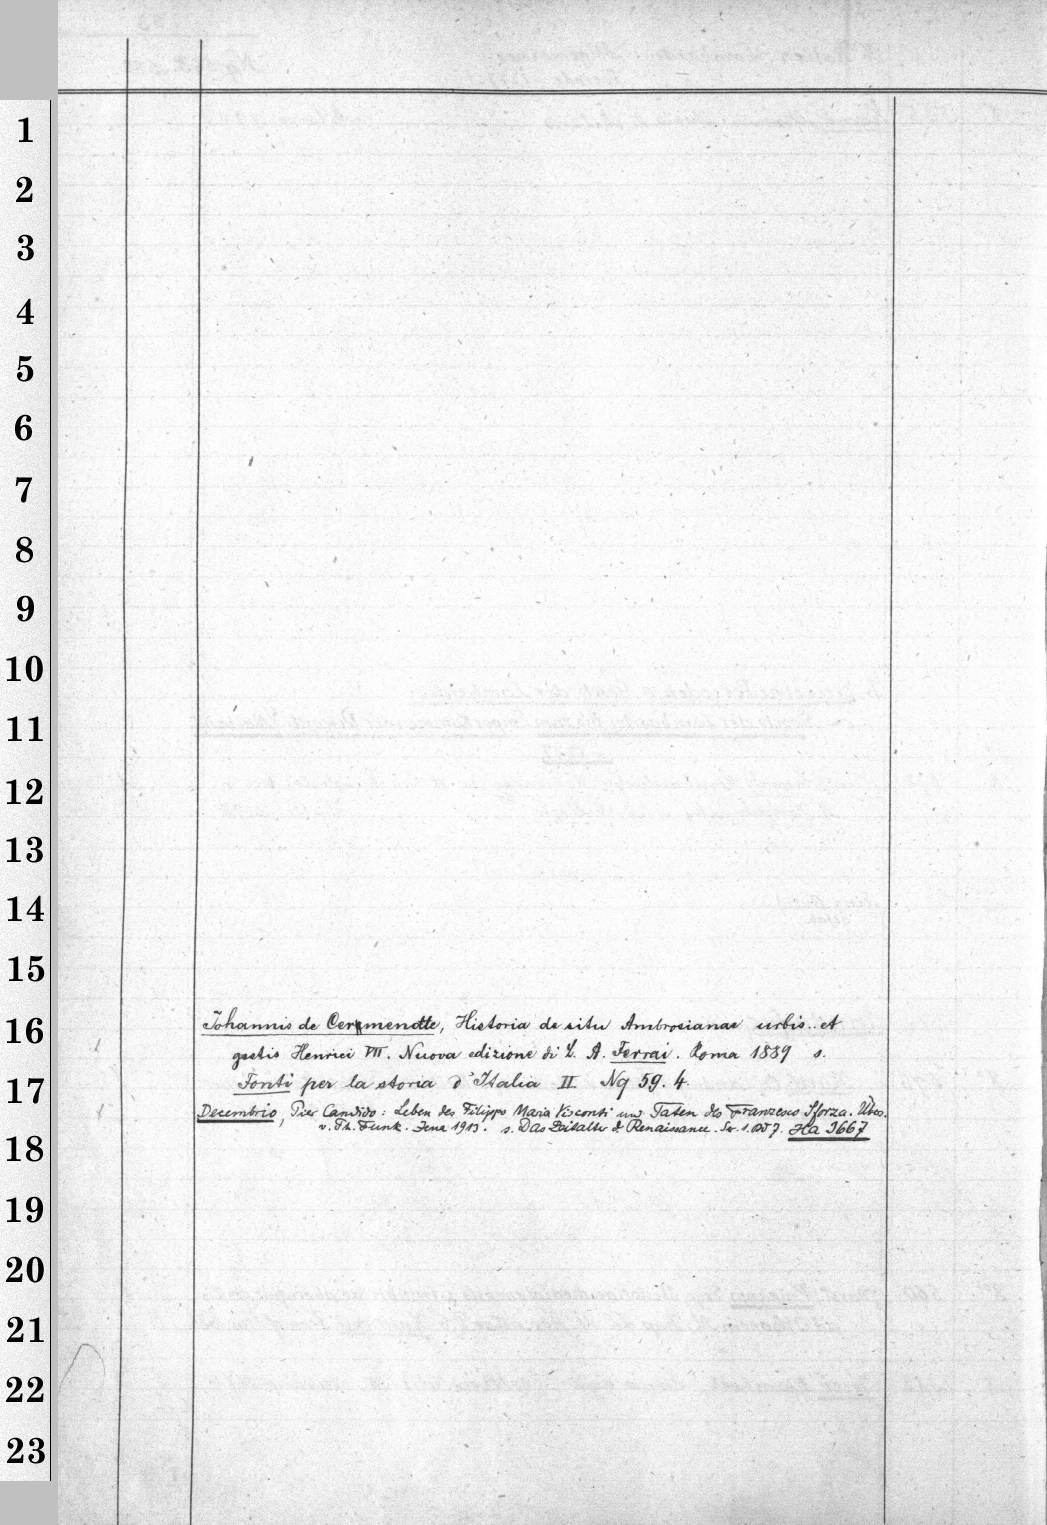 1
2
3
4
5
6
7
8
9
10
11
12
13
14
15
16
17
18
19
20
21
22
23
Johannis de Cermenatte, Historia de situ Ambrosianae urbis.. et
gestis Henrici VII. Nuova edizione di L. A. Ferrai. Roma 1889 s.
Fonti per la storia d'Italia II Nq 59. 4.
Decembrio, Pier Candido: Leben des Filippo Maria Visconti und Taten des Franzesco Sforza. Übers.
v. Ph. Funk. Jena 1913. s. Das Zeitalter d. Renaissance. Ser. 1. Bd 7. Ha 3667